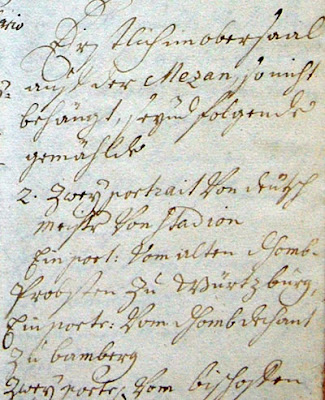 Erstlich im obersaal
auf der Mezan, so nicht
behängt, seynd folgende
gemählde
2. Zwey portrait von deutsch
meistr von stadion
Ein poet: vom alten Thomb-
Probsten zu Würtzburg,
Ein poete: vom Thombdechant
zu bamberg
Zwey poete, vom bischoffen